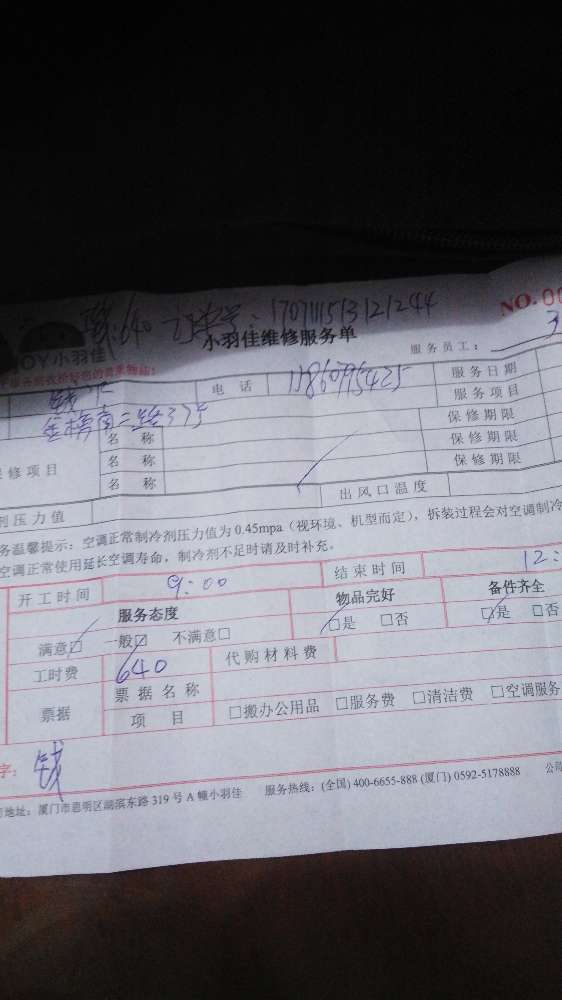 640 1707111513121244
NO.00
JOY小羽佳
小羽佳维修服务单
服务员工： 3
电 话 服务日期
金榜南二路37号 服务项目
名 称 保修期限
修项目 名 称 保修期限
名 称 保修期限
剂压力值 出风口温度
务温馨提示：空调正常制冷剂压力值为 0.45mpa（视环境、机型而定），拆装过程会对空调制冷
空调正常使用延长空调寿命，制冷剂不足时请及时补充。
开工时间 9:00 结束时间 12:
服务态度 物品完好 备件齐全
满意☑ 一般☑ 不满意☐ ☑是 ☐否 ☑是 ☐否
工时费 640 代购材料费
票据 票据名称
项 目 ☐搬办公用品 ☐服务费 ☐清洁费 ☐空调服务
字： 钱
地址：厦门市思明区湖滨东路 319 号 A 幢小羽佳 服务热线：(全国) 400-6655-888 (厦门) 0592-5178888 公司